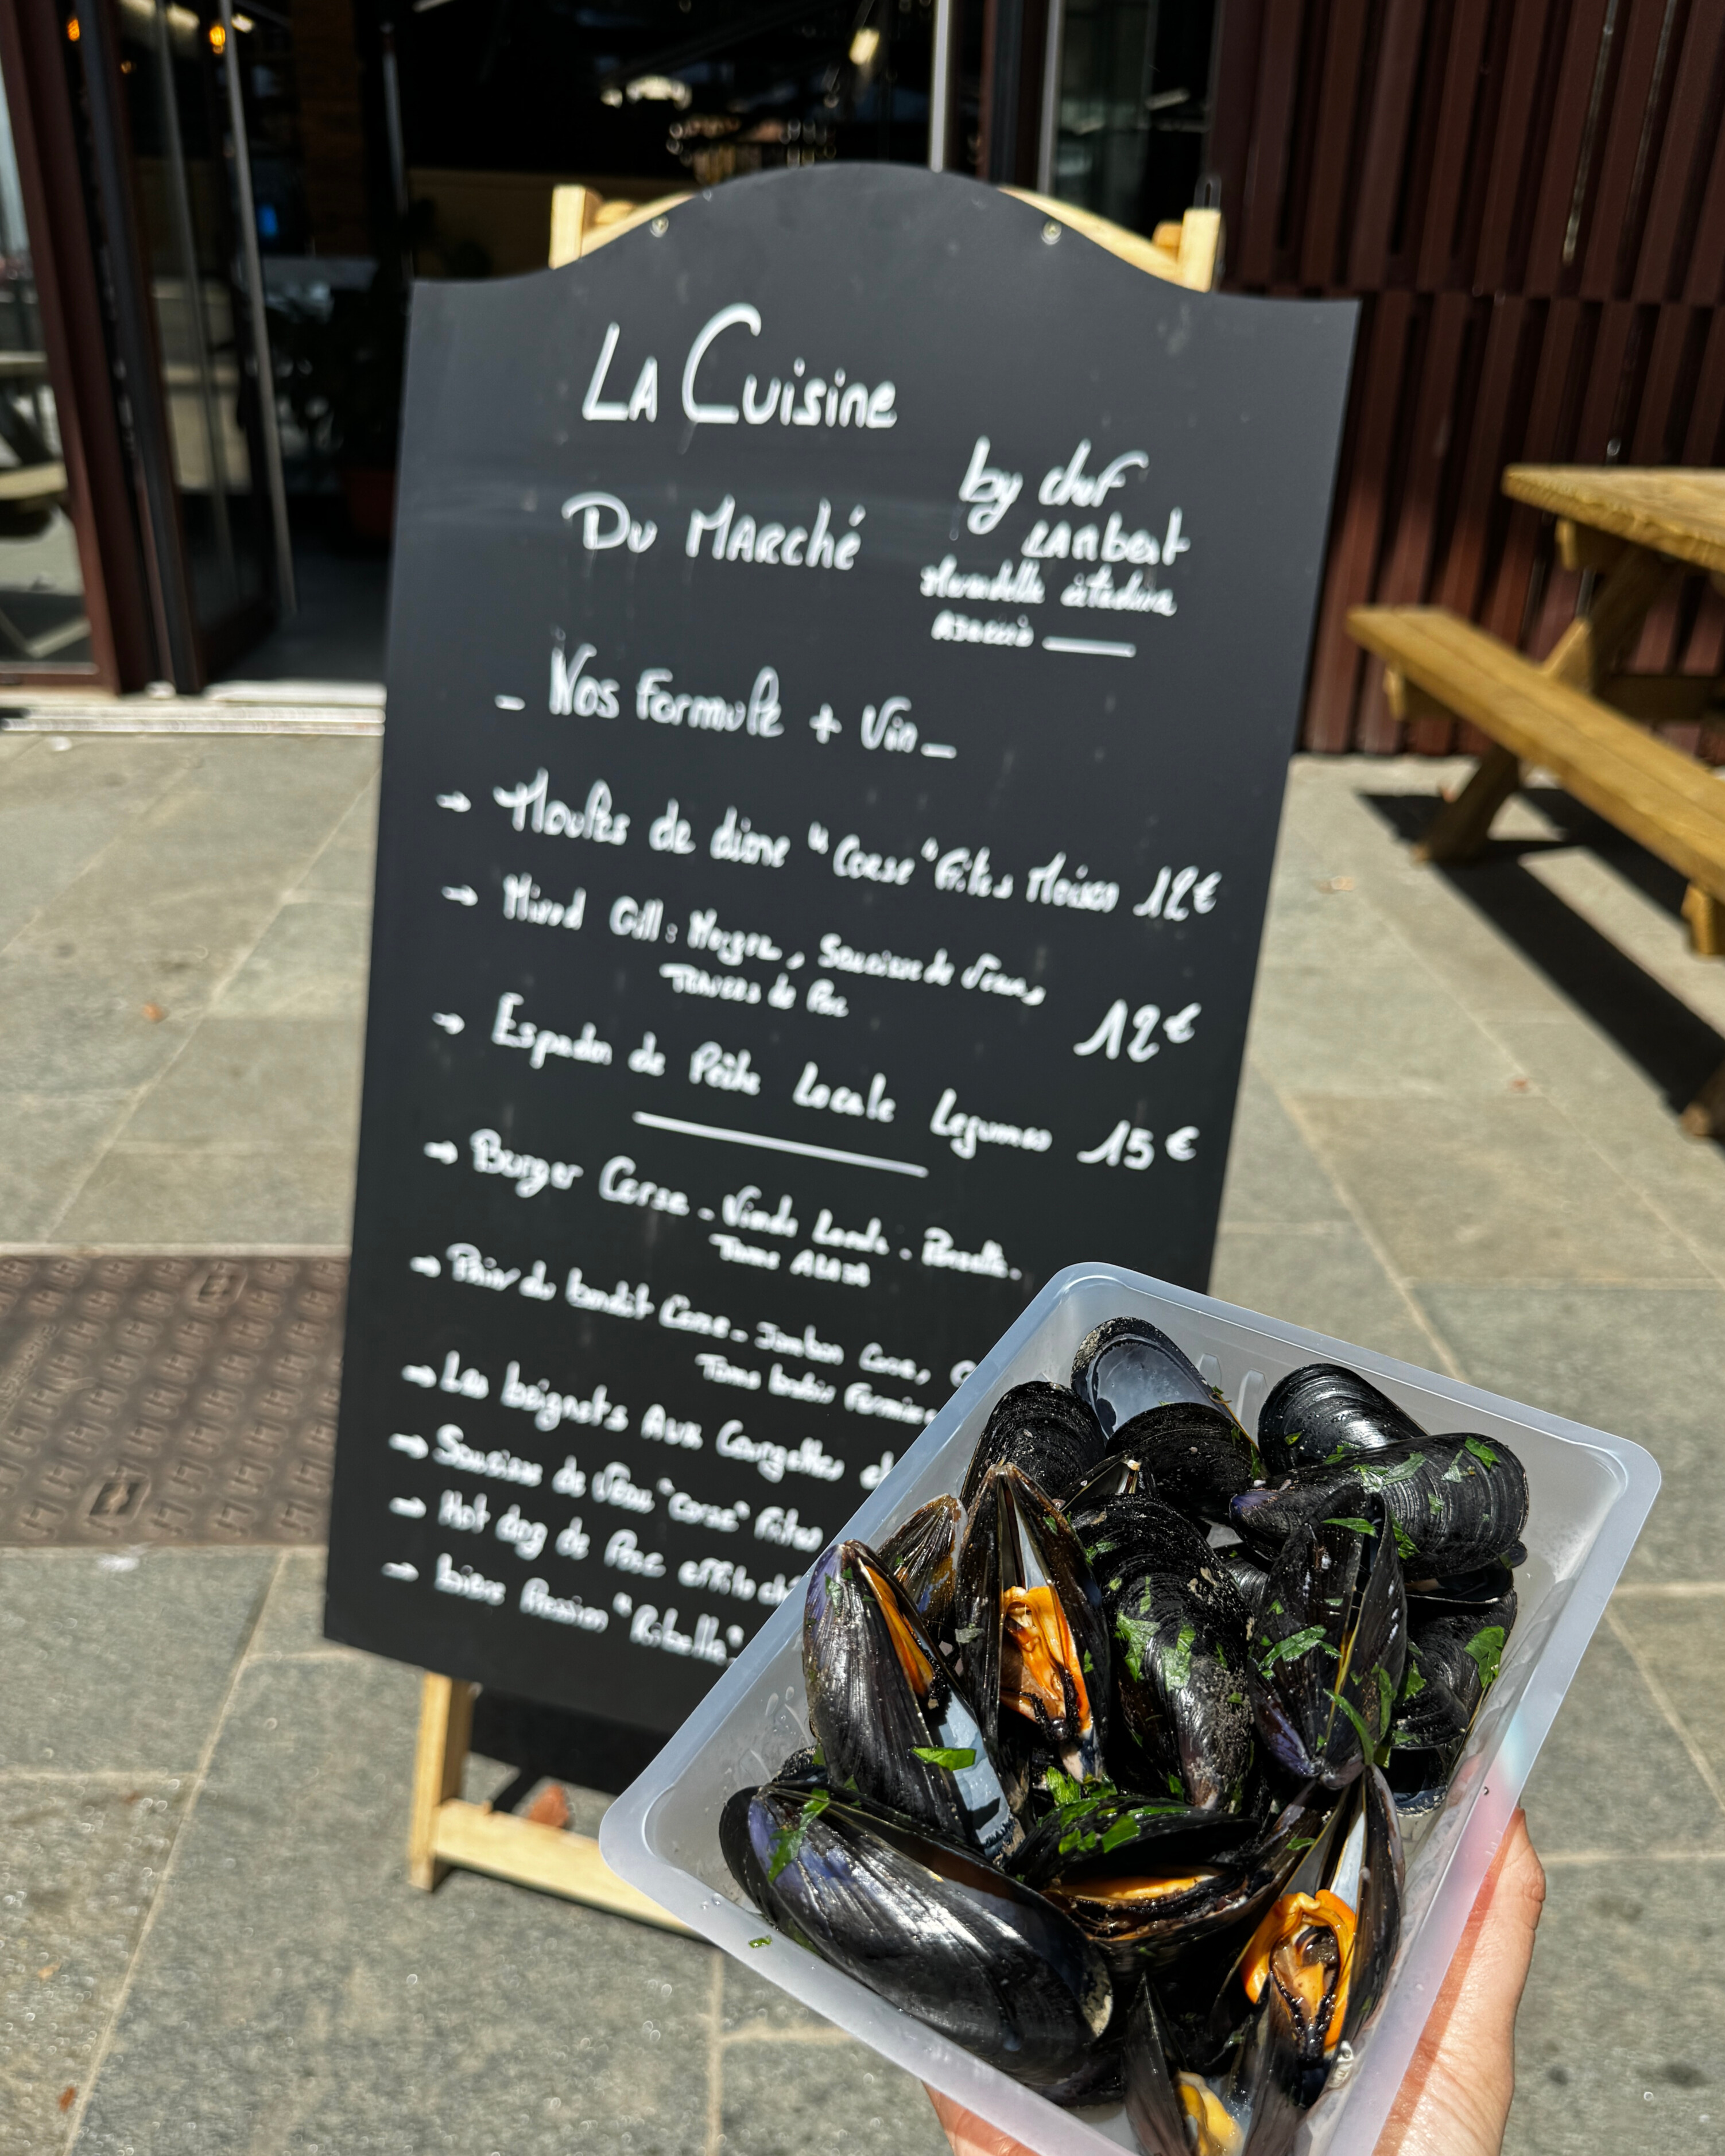 LA Cuisine
Du MARché
by chef
LAMbert
AJAccio
- Nos Formule + Vin -
→ Moules de diane "Corse" Frites Maison 12€
→ Mixed Grill : Merguez, Saucisse de Veau,
TRAVERS de Porc
12€
→ Espadon de Pêche Locale Legumes 15€
→ Burger Corse - Viande Locale -
Tome
→ du bandit Corse - Jambon Corse,
Tome brebis
→ Les beignets Aux Courgettes et
→ Saucisse de Veau "Corse" Frites
→ Hot dog de Porc effiloché
→ bière Pression "Ribella"